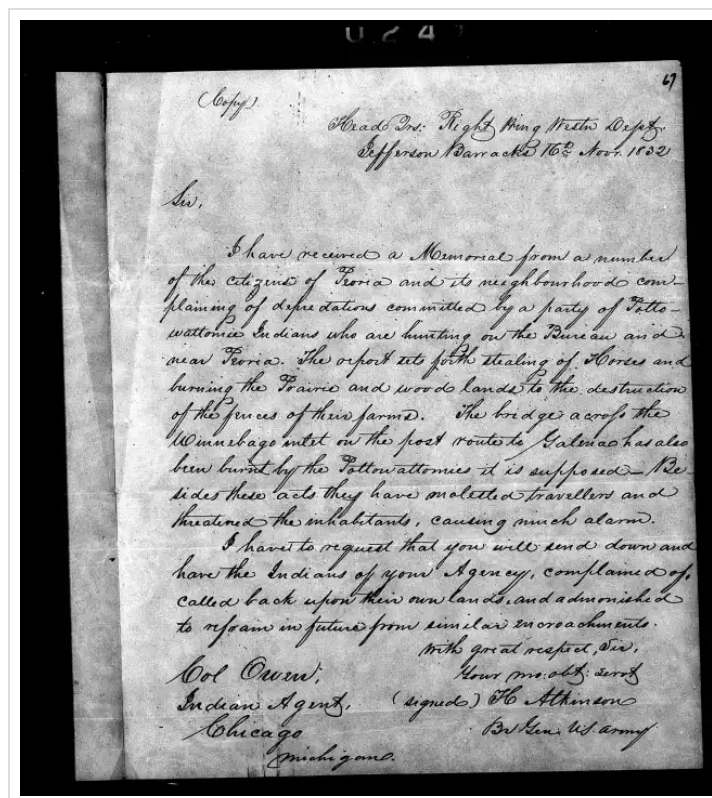 024
67
(Copy)
Head Qrs: Right Wing Westn Dept.
Jefferson Barracks 16th Novr. 1832
Sir,
I have received a Memorial from a number
of the citizens of Peoria and its neighbourhood com-
plaining of depredations committed by a party of Potto-
wattomie Indians who are hunting on the Bureau and
near Peoria. The report sets forth stealing of Horses and
burning the Prairie and wood lands to the destruction
of the fences of their farms. The bridge across the
Winnebago inlet on the post route to Galena has also
been burnt by the Pottowattomies it is supposed – Be-
sides these acts they have molested travellers and
threatened the inhabitants, causing much alarm.
I have to request that you will send down and
have the Indians of your Agency, complained of,
called back upon their own lands, and admonished
to refrain in future from similar encroachments.
With great respect, Sir,
Your mo: obt: servt
Col Owen,
Indian Agent, (signed) H Atkinson
Chicago Br Gen. U.S. army
Michigan.